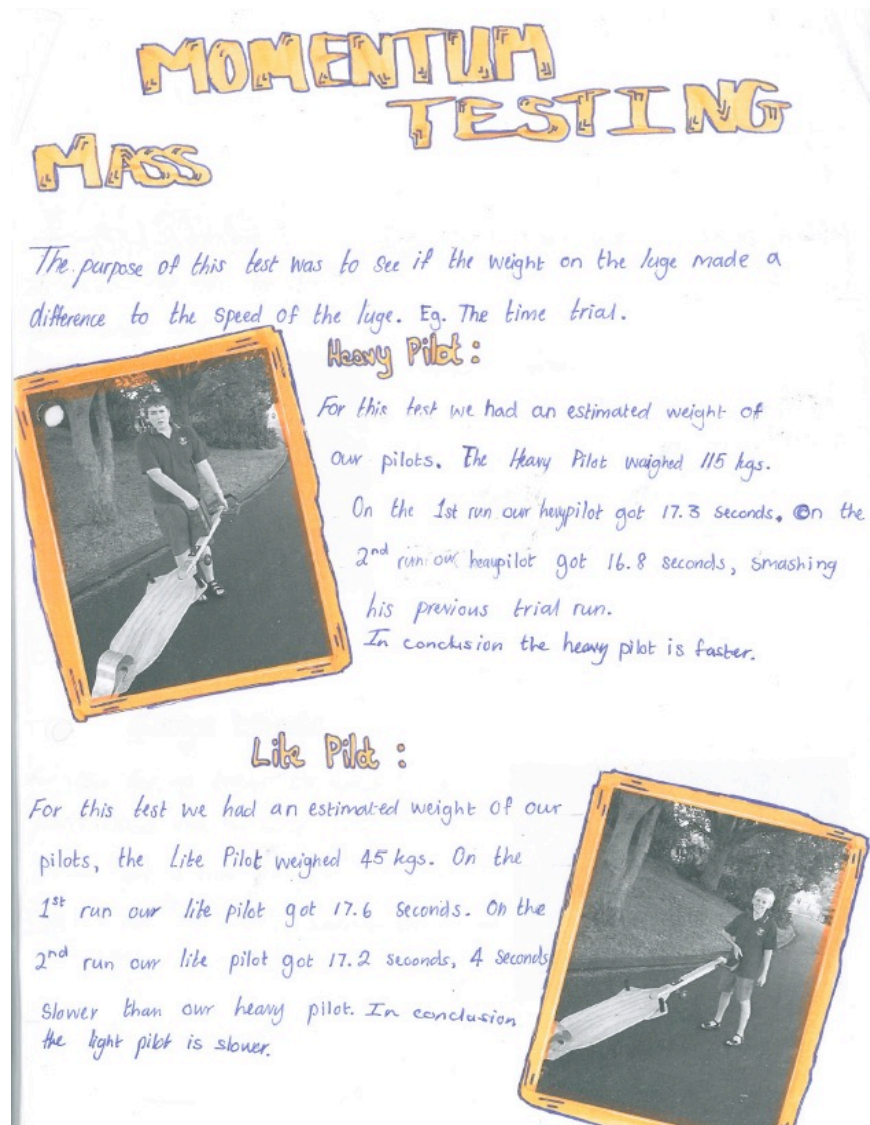 MOMENTUM
TESTING
MASS
The purpose of this test was to see if the weight on the luge made a
difference to the speed of the luge. Eg. The time trial.
Heavy Pilot :
For this test we had an estimated weight of
our pilots. The Heavy Pilot waighed 115 kgs.
On the 1st run our hevypilot got 17.3 seconds. On the
2nd run our heavypilot got 16.8 seconds, smashing
his previous trial run.
In conclusion the heavy pilot is faster.
Lite Pilot :
For this test we had an estimated weight of our
pilots, the Lite Pilot weighed 45 kgs. On the
1st run our lite pilot got 17.6 seconds. On the
2nd run our lite pilot got 17.2 seconds, 4 seconds
slower than our heavy pilot. In conclusion
the light pilot is slower.